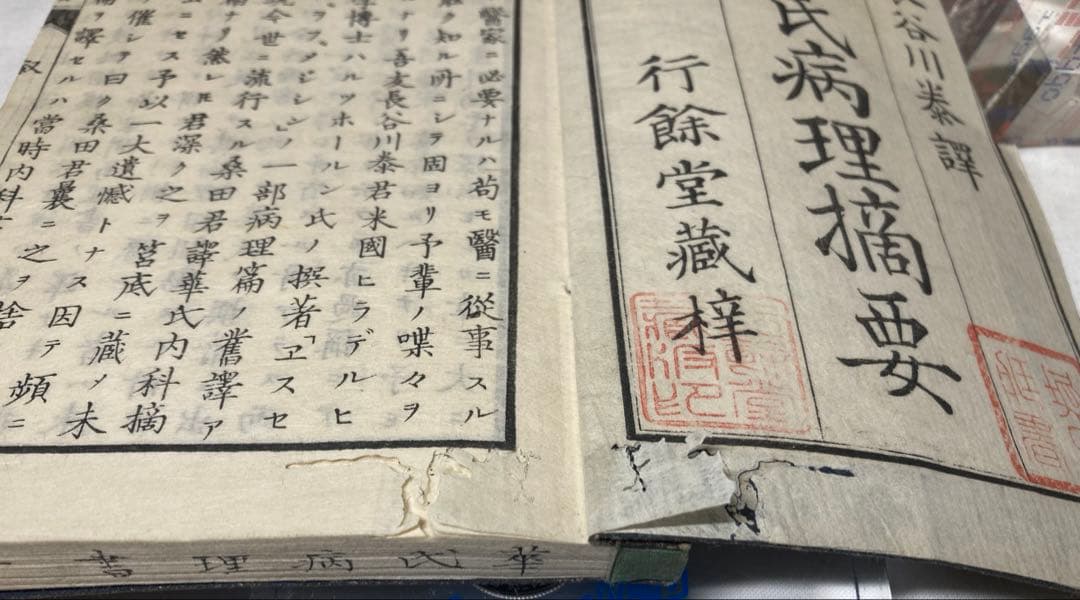 谷川泰譯
氏病理摘要
行餘堂藏梓
醫家ニ必要ナルハ苟モ醫ニ從事スル
ク知ル所ニシテ固ヨリ予輩ノ喋々ヲ
ナリ吾友長谷川泰君米國ヒラデルヒ
博士ハルツホールン氏ノ撰著「ヱスセ
ヲフ、メジシン」ノ一部病理篇ノ舊譯ア
今世ニ流行スル桑田君譯華氏内科摘
ナリ然レ𪜈君深ク之ヲ筥底ニ藏メ未
ニセス予以一大遺憾トナス因テ頻ニ
催シテ曰ク桑田君曩ニ之ヲ捨
譯セルハ當時内科
叙
華氏病理書